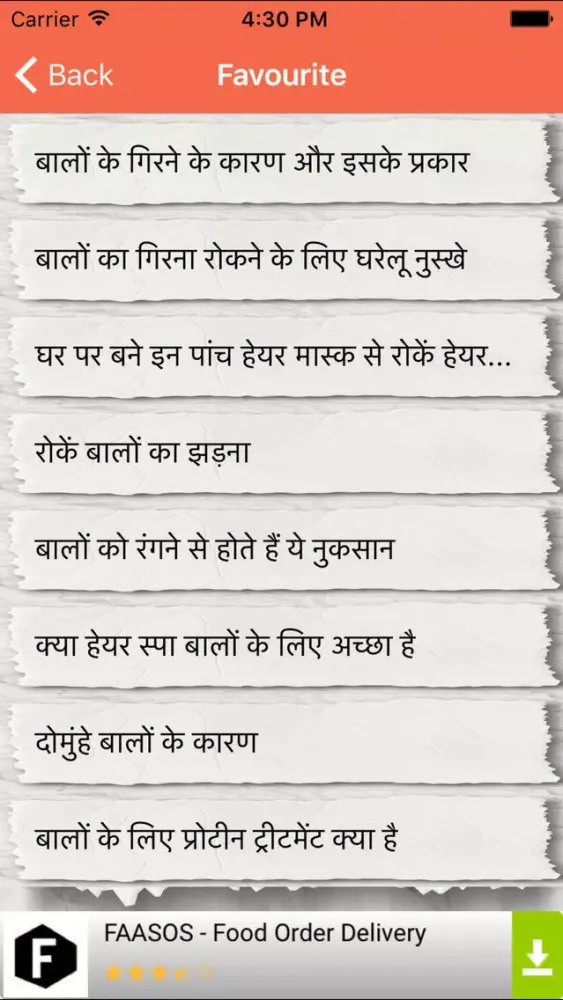 Carrier 4:30 PM
Back Favourite
बालों के गिरने के कारण और इसके प्रकार
बालों का गिरना रोकने के लिए घरेलू नुस्खे
घर पर बने इन पांच हेयर मास्क से रोकें हेयर...
रोकें बालों का झड़ना
बालों को रंगने से होते हैं ये नुकसान
क्या हेयर स्पा बालों के लिए अच्छा है
दोमुंहे बालों के कारण
बालों के लिए प्रोटीन ट्रीटमेंट क्या है
F FAASOS - Food Order Delivery